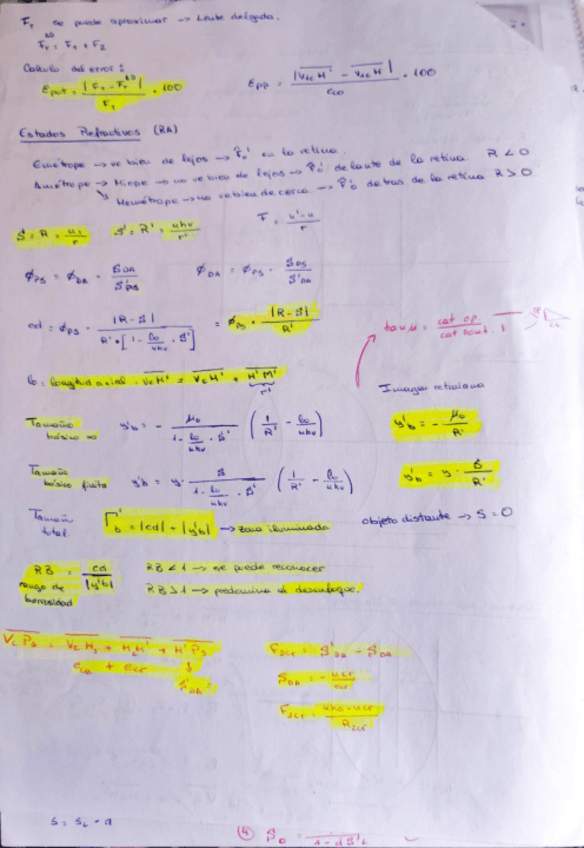 F_T se puede aproximar → Lente delgada.
F_T^AD = F_1 + F_2
Calculo del error:
E_pot = |F_T - F_T^AD| / F_T · 100
E_PP = |V_ac H' - V_ac H| / e_co · 100
Estados Refractivos (RA)
Emétrope → ve bien de lejos → F_o' en la retina.
Amétrope → Miope → no ve bien de lejos → F_o' delante de la retina R < 0
↘ Hemétrope → no ve bien de cerca → F_o' detras de la retina R > 0
F = (u' - u) / r
S = R = u_1 / r
S' = R' = u_hv / r'
Φ_PS = Φ_DA · S_DA / S'_PS
Φ_DA = Φ_PS · S_PS / S'_DA
cd = Φ_PS · |R - S| / (R' · [1 - l_o/u_hv · S']) = Φ_PS · |R - S| / R'
tan μ = cat op / cat cont.
l_o = longitud axial = V_c M' = V_c H' + H' M'
r'
Imagen retiniana
Tamaño básico ∞ y'_b = - μ_o / (1 - l_o/u_hv · S') (1/R' - l_o/u_hv)
y'_b = - μ_o / R'
Tamaño básico finito y'_b = y · S / (1 - l_o/u_hv · S') (1/R' - l_o/u_hv)
y'_b = y · S / R'
Tamaño total Γ'_b = |cd| + |y'_b| → zona iluminada
objeto distante → S = 0
RB = cd / |y'b|
rango de borrosidad
RB < 1 → se puede reconocer
RB > 1 → predomina el desenfoque.
V_c P_s = V_c H_2 + H_2 H' + H' P_s
e_ca + e_cr
S'_DA
F_2cr = S'_DA - S_DA
S_DA = - u_cr / e_cr
R_2cr
S = S_L - d
④ S_o = / 1 - d S'_L